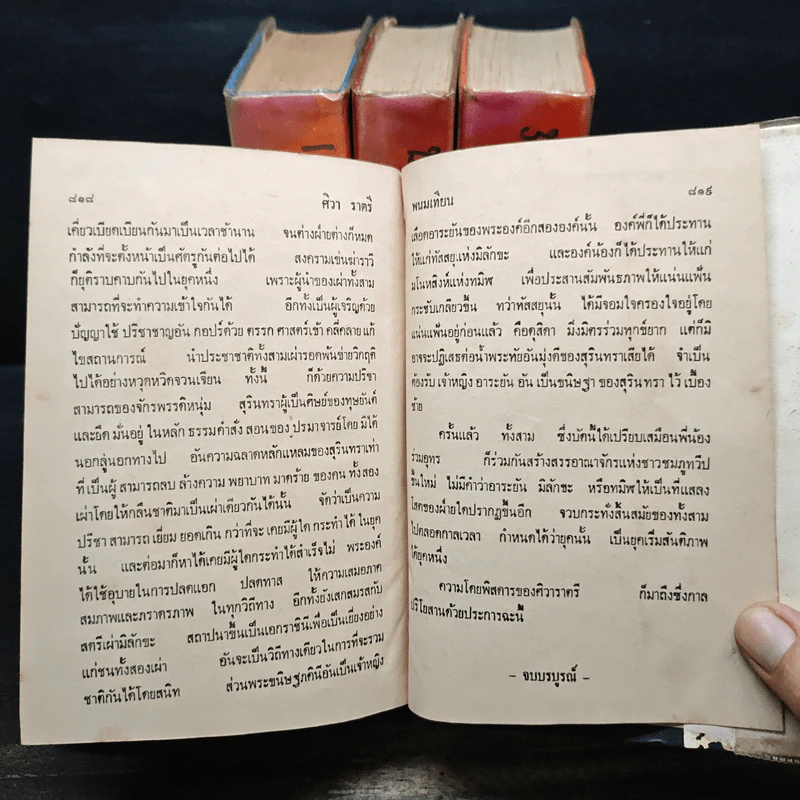 ๑
๒
๓
๘๑๘ ศิวา ราตรี
เคี่ยวเบียดเบียนกันมาเป็นเวลาช้านาน จนต่างฝ่ายต่างก็หมด
กำลังที่จะตั้งหน้าเป็นศัตรูกันต่อไปได้ สงครามเข่นฆ่าราวี
ก็ยุติราบคาบกันไปในยุคหนึ่ง เพราะผู้นำของเผ่าทั้งสาม
สามารถที่จะทำความเข้าใจกันได้ อีกทั้งเป็นผู้เจริญด้วย
ปัญญาใช้ ปรีชาชาญอัน กอปร์ด้วย ตรรก ศาสตร์เข้า คลี่คลาย แก้
ไขสถานการณ์ นำประชาชาติทั้งสามเผ่ารอดพ้นข่ายวิกฤติ
ไปได้อย่างหวุดหวิดจวนเจียน ทั้งนี้ ก็ด้วยความปรีชา
สามารถของจักรพรรดิหนุ่ม สุรินทราผู้เป็นศิษย์ของทุษยันต์
และยึด มั่นอยู่ ในหลัก ธรรมคำสั่ง สอนของ ปรมาจารย์โดย มิได้
นอกลู่นอกทางไป อันความฉลาดหลักแหลมของสุรินทราเท่า
ที่ เป็นผู้ สามารถลบ ล้างความ พยาบาท มาดร้าย ของคน ทั้งสอง
เผ่าโดยให้กลืนชาติมาเป็นเผ่าเดียวกันได้นั้น จัดว่าเป็นความ
ปรีชา สามารถ เยี่ยม ยอดเกิน กว่าที่จะ เคยมีผู้ใด กระทำได้ ในยุค
นั้น และต่อมาก็หาได้เคยมีผู้ใดกระทำได้สำเร็จไม่ พระองค์
ได้ใช้อุบายในการปลดแอก ปลดทาส ให้ความเสมอภาค
สมภาพและภราดรภาพ ในทุกวิถีทาง อีกทั้งยังเสกสมรสกับ
สตรีเผ่ามิลักขะ สถาปนาขึ้นเป็นเอกราชินีเพื่อเป็นเยี่ยงอย่าง
แก่ชนทั้งสองเผ่า อันจะเป็นวิถีทางเดียวในการที่จะรวม
ชาติกันได้โดยสนิท ส่วนพระขนิษฐภคินีอันเป็นเจ้าหญิง
พนมเทียน ๘๑๙
เลือดอาระยันของพระองค์อีกสององค์นั้น องค์พี่ก็ได้ประทาน
ให้แก่ทัสสยุแห่งมิลักขะ และองค์น้องก็ได้ประทานให้แก่
มโนหสิงห์แห่งทมิฬ เพื่อประสานสัมพันธภาพให้แน่นแฟ้น
กระชับเกลียวขึ้น ทว่าทัสสยุนั้น ได้มีจอมใจครองใจอยู่โดย
แน่นแฟ้นอยู่ก่อนแล้ว คือดุสิตา มิ่งมิตรร่วมทุกข์ยาก แต่ก็มิ
อาจจะปฏิเสธต่อน้ำพระทัยอันมุ่งดีของสุรินทราเสียได้ จำเป็น
ต้องรับ เจ้าหญิง อาระยัน อัน เป็นขนิษฐา ของสุรินทรา ไว้ เบื้อง
ซ้าย
ครั้นแล้ว ทั้งสาม ซึ่งบัดนี้ได้เปรียบเสมือนพี่น้อง
ร่วมอุทร ก็ร่วมกันสร้างสรรอาณาจักรแห่งชาวชมภูทวีป
ขึ้นใหม่ ไม่มีคำว่าอาระยัน มิลักขะ หรือทมิฬให้เป็นที่แสลง
โสตของฝ่ายใดปรากฏขึ้นอีก จวบกระทั่งสิ้นสมัยของทั้งสาม
ไปตลอดกาลเวลา กำหนดได้ว่ายุคนั้น เป็นยุคเริ่มสันติภาพ
ได้ยุคหนึ่ง
ความโดยพิสดารของศิวาราตรี ก็มาถึงซึ่งกาล
ปริโยสานด้วยประการฉะนี้
– จบบริบูรณ์ –